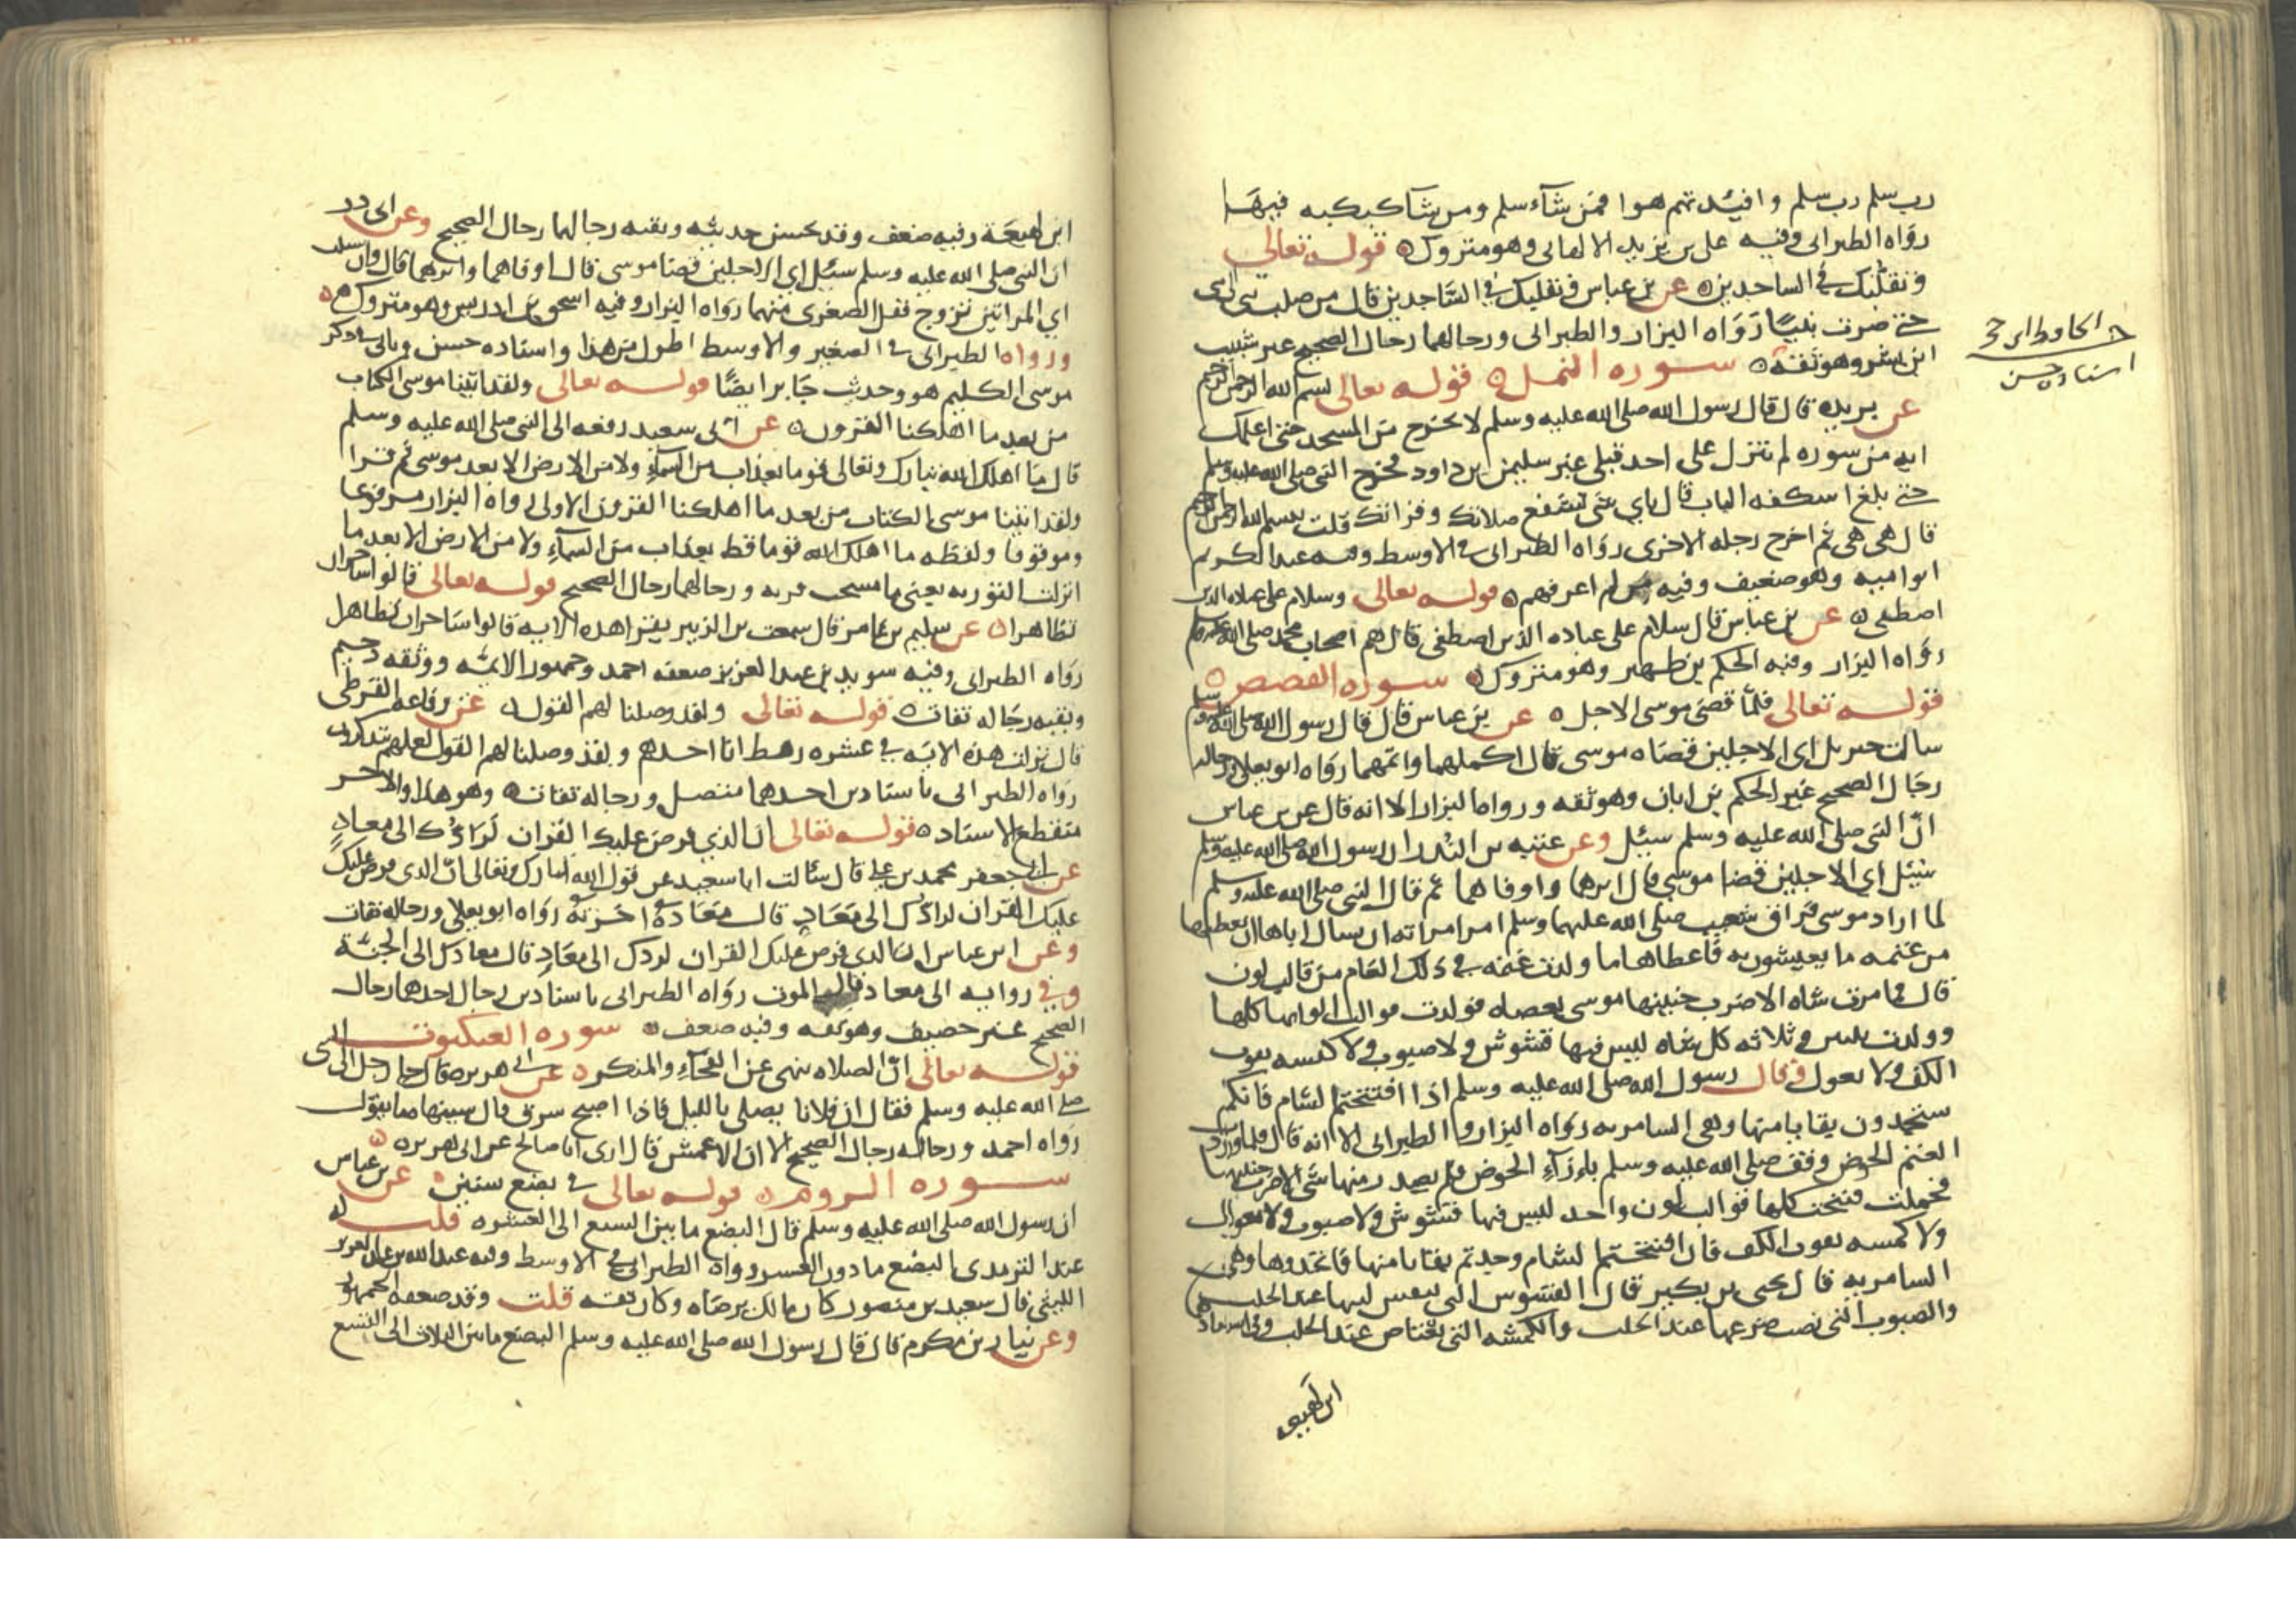 رب سلم رب سلم وافئدتهم هوا فمن شاء سلم ومن شا كبكبه فيها
رواه الطبراني وفيه علي بن يزيد الالهاني وهو متروك قوله تعالى
وتقلبك في الساجدين عن بن عباس وتقلبك في الساجدين قال من صلب نبي الى نبي
حتى صرت نبيا رواه البزار والطبراني ورجالهما رجال الصحيح غير شبيب
ابن بشر وهو ثقة سورة النمل قوله تعالى بسم الله الرحمن الرحيم
عن بريده قال قال رسول الله صلى الله عليه وسلم لا تخرج من المسجد حتى اعلمك
ايه من سوره لم تنزل على احد قبلي غير سليمن بن داود فخرج النبي صلى الله عليه وسلم
حتى بلغ اسكفه الباب قال باي شي تستفتح صلاتك وقراتك قلت بسم الله الرحمن الرحيم
قال هي هي ثم اخرج رجله الاخرى رواه الطبراني في الاوسط وفيه عبد الكريم
ابو اميه وهو ضعيف وفيه من لم اعرفهم قوله تعالى وسلام على عباده الذين
اصطفى عن بن عباس قال سلام على عباده الذين اصطفى قال هم اصحاب محمد صلى الله عليه وسلم
رواه البزار وفيه الحكم بن ظهير وهو متروك سورة القصص
قوله تعالى فلما قضى موسى الاجل عن بن عباس قال قال رسول الله صلى الله عليه وسلم
سالت جبريل اي الاجلين قضاه موسى قال اكملهما واتمهما رواه ابو يعلى ورجاله
رجال الصحيح غير الحكم بن ابان وهو ثقه ورواه البزار الا انه قال عن بن عباس
ان النبي صلى الله عليه وسلم سئل وعن عتبه بن الندر ان رسول الله صلى الله عليه وسلم
سئل اي الاجلين قضا موسى قال ابرهما واوفاهما ثم قال النبي صلى الله عليه وسلم
لما اراد موسى فراق شعيب صلى الله عليهما وسلم امر امراته ان تسال اباها ان يعطيها
من غنمه ما يعيشون به فاعطاها ما ولدت غنمه في ذلك العام من قالب لون
قال فما مرت شاه الا ضرب جنبيها موسى بعصاه فولدت قوالب الوانها كلها
وولدت ثنتين وثلاثه كل شاه ليس فيها فشوش ولا ضبوب ولا كمشه تفوت
الكف ولا ثعول وقال رسول الله صلى الله عليه وسلم اذا افتتحتم الشام فانكم
ستجدون بقايا منها وهي السامريه رواه البزار والطبراني الا انه قال فلما وردت
الغنم الحوض وقف صلى الله عليه وسلم بازاء الحوض فلم يصدر منها شي الا ضرب جنبها
فحملت فنتجت كلها قوالب لون واحد ليس فيها فشوش ولا ضبوب ولا ثعوال
ولا كمشه تفوت الكف فان افتتحتم الشام وجدتم بقايا منها فاتخذوها وهي
السامريه قال يحيى بن بكير قال الفشوس التي تنفس لبنها عند الحلب
والضبوب التي نصب ضرعها عند الحلب والكمشه التي تعتاص عند الحلب وفي اسنادهما
ابن لهيعه
اسناده حسن
ابن لهيعة وفيه ضعف وقد يحسن حديثه وبقيه رجالهما رجال الصحيح وعن ابي ذر
ان النبي صلى الله عليه وسلم سئل اي الاجلين قضا موسى قال اوفاهما وابرهما قال وان سئلت
اي المراتين تزوج فقل الصغرى منهما رواه البزار وفيه اسحق بن ادريس وهو متروك
ورواه الطبراني في الصغير والاوسط اطول من هذا واسناده حسن وياتي في ذكر
موسى الكليم هو وحديث جابر ايضا قوله تعالى ولقد اتينا موسى الكتاب
من بعد ما اهلكنا القرون عن ابي سعيد رفعه الى النبي صلى الله عليه وسلم
قال ما اهلك الله تبارك وتعالى قوما بعذاب من السماء ولا من الارض الا بعد موسى ثم قرا
ولقد اتينا موسى الكتاب من بعد ما اهلكنا القرون الاولى رواه البزار مرفوعا
وموقوفا ولفظه ما اهلك الله قوما قط بعذاب من السماء ولا من الارض الا بعد ما
انزلت التوريه يعني ما مسخت قريه ورجالهما رجال الصحيح قوله تعالى قالوا ساحران
تظاهرا عن سليم بن عامر قال سمعت بن الزبير يقرا هذه الايه قالوا ساحران تظاهرا
رواه الطبراني وفيه سويد بن عبد العزيز ضعفه احمد وجمهور الائمه ووثقه دحيم
وبقيه رجاله ثقات قوله تعالى ولقد وصلنا لهم القول عن رفاعه القرظي
قال نزلت هذه الايه في عشره رهط انا احدهم ولقد وصلنا لهم القول لعلهم يتذكرون
رواه الطبراني باسنادين احدهما متصل ورجاله ثقات وهو هذا والاخر
منقطع الاسناد قوله تعالى ان الذي فرض عليك القران لرادك الى معاد
عن ابي جعفر محمد بن علي قال سئالت ابا سعيد عن قول الله تبارك وتعالى ان الذي فرض عليك
عليك القران لرادك الى معاد قال معاده اخرته رواه ابو يعلى ورجاله ثقات
وعن ابن عباس ان الذي فرض عليك القران لردك الى معاد قال معادك الى الجنة
وفي روايه الى معاد قال الموت رواه الطبراني باسنادين رجال احدهما رجال
الصحيح غير خصيف وهو ثقه وفيه ضعف سورة العنكبوت
قوله تعالى ان الصلاه تنهى عن الفحشاء والمنكر عن ابي هريره قال جا رجل الى النبي
صلى الله عليه وسلم فقال ان فلانا يصلي بالليل فاذا اصبح سرق قال سينهاه ما تقول
رواه احمد ورجاله رجال الصحيح الا ان الاعمش قال ارى ابا صالح عن ابي هريره
سورة الروم قوله تعالى في بضع سنين عن بن عباس
ان رسول الله صلى الله عليه وسلم قال البضع ما بين السبع الى العشره قلت له
عند الترمذي البضع ما دون العشر رواه الطبراني في الاوسط وفيه عبد الله بن عبد العزيز
الليثي قال سعيد بن منصور كان مالك يرضاه وكان ثقه قلت وقد ضعفه الجمهور
وعن نيار بن مكرم قال قال رسول الله صلى الله عليه وسلم البضع ما بين الثلاث الى التسع